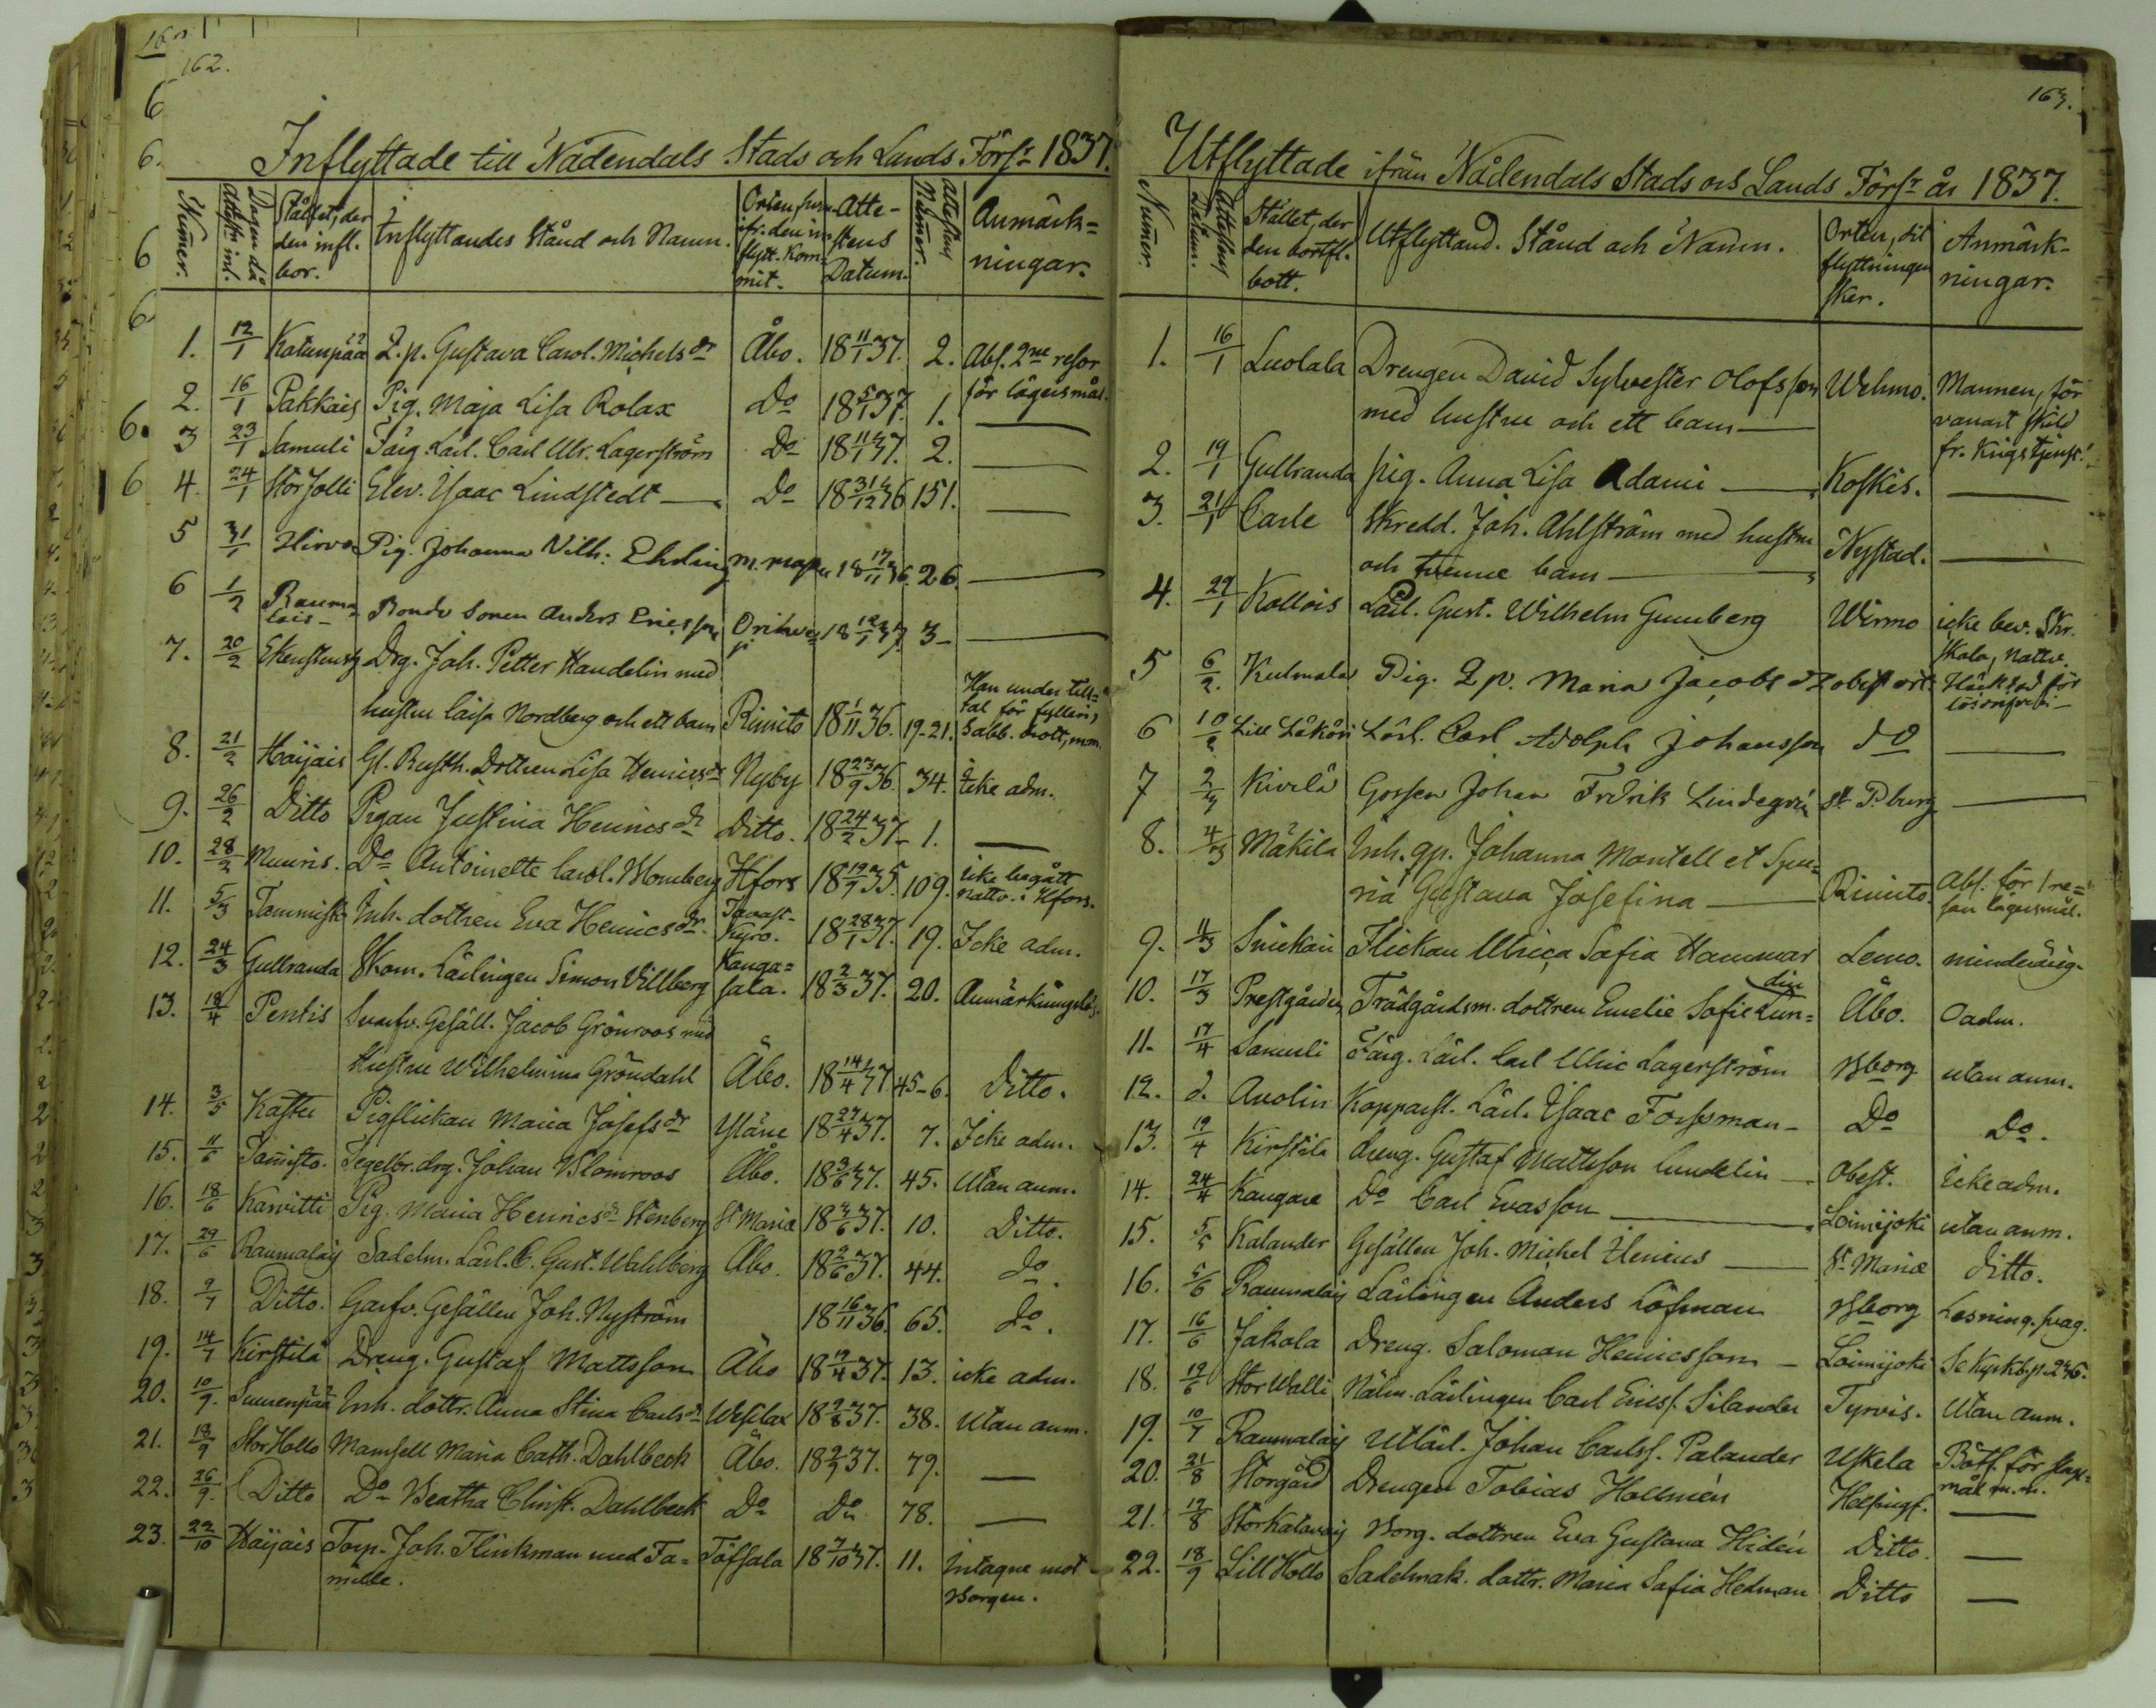 162.
Inflyttade till Nådendals Stads och Lands Förs: 1837.
Numer. Dagen då attestn inl. Stället, der den infl. bor. Inflyttandes Stånd och Namn. Orten, hvarifr. den inflytt. kommit. Attestens Datum. Attestens Numer. Anmärkningar.
1. 12/1 Katunpää Q.p. Gustava Carol. Michelsdr Åbo. 18 11/1 37. 2. Abs. 2ne resor
för lägersmål.
2. 16/1 Pakkais Pig. Maja Lisa Rolax Do 18 5/1 37. 1.
3 23/1 Samuli Färg. Lärl. Carl Ulr. Lagerström Do 18 11/1 37. 2. —
4. 24/1 Stor Jolli Elev. Isaac Lindstedt — Do 18 31/12 36 151. —
5 31/1 Hirvo Pig. Johanna Vilh: Ehding 18 17/11 36. 26. —
6 1/2 Raumalais- Bonde Sonen Anders Ericsson Orihves 18 12/1 37. 3 —
7. 20/2 Drg. Joh. Petter Handelin med
hustru Caisa Nordberg och ett barn Rimito 18 1/11 36. 19-21. Han under tilltal för fylleri, Sabb. brott, mm.
8. 21/2 Haijais Gl. Rusth. Dottren Lisa Henricsdr Nyby 18 23/9 36. 34. Icke adm.
9. 26/2 Ditto Pigan Justina Henricsdr Ditto. 18 24/2 37- 1. —
10. 28/2 Muuris. Do Antoinette Carol. Blomberg Hfors 18 19/9 35. 109. icke begått
nattv. i Hfors.
11. 5/3 Tammisto Inh. dottren Eva Henricsdr. Tavast-
Kyro. 18 28/1 37. 19. Icke adm.
12. 24/3 Gullranda Skom. Lärlingen Simon Villberg Kanga=
sala. 18 2/3 37. 20. Anmärkningslös.
13. 18/4 Pentis Svarfv. Gesäll. Jacob Grönroos med
Hustru Wilhelmina Gröndahl Åbo. 18 14/4 37 45-6. Ditto.
14. 3/5 Kastu Pigflickan Maria Josefsdr Yläne 18 27/4 37. 7. Icke adm.
15. 11/6 Tam̄isto. Tegelbr. drg. Johan Blomroos Åbo. 18 9/6 37. 45. Utan anm.
16. 18/6 Karvitti Pig. Maria Henricsdr Stenberg St Mariæ 18 4/6 37. 10. Ditto.
17. 29/6 Raumalais Sadelm. Lärl. C. Gust. Wahlberg Åbo. 18 2/6 37. 44. do.
18. 9/7 Ditto. Garfv. Gesällen Joh. Nyström 18 16/11 36. 65. do.
19. 14/7 Kirstilä Dreng. Gustaf Mattsson Åbo 18 19/4 37. 13. icke adm.
20. 10/9. Suurenpää Inh. dottr. Anna Stina Carlsdr Wesilax 18 9/8 37. 38. Utan anm.
21. 18/9 Stor Hollo Mamsell Maria Cath. Dahlbeck Åbo. 18 2/9 37. 79. —
22. 26/9. Ditto Do Beatha Christ. Dahlbeck Do Do 78. —
23. 22/10 Haijais Torp. Joh. Flinkman med Fa=
mille. Töfsala 18 7/10 37. 11. Intagne mot
Borgen.
163.
Utflyttade ifrån Nådendals Stads och Lands Förs: år 1837.
Numer. Attestens Datum. Stället, der den bortfl. bott. Utflyttand. Stånd och Namn. Orten, dit flyttningen sker. Anmärkningar.
1. 16/1 Luolala Drengen David Sylvester Olofsson Wehmo. Mannen, för
med hustru och ett barn — vanart skild
fr. Krigstjenst.
2. 19/1 Gullranda pig. Anna Lisa Adami — Koskis. —
3. 21/1 Carle Skredd. Joh. Ahlström med hustru
och tvenne barn — Nystad. —
4. 29/1 Kollois Lärl. Gust. Wilhelm Gumberg Wirmo icke bev. Skr.
skola, nattv.
5 6/2. Kulmala Pig. Q p. Maria Jacobsdr obest ort.
6 10/2 Lill Lärl. Carl Adolph Johansson do —
7 2/3 Kivelä Gossen Johan Fridrik Lindegrén St P.burg —
8. 4/3 Mäkilä Inh. qp. Johanna Montell et Spu=
ria Gustava Josefina — Rimito. Abs. för 1 re=
san lägersmål.
9. 11/3 Snickari Flickan Ulrica Safia Hammar Lemo. minderårig.
10. 17/3 Prestgården Trädgårdsm. dottren Emelie Sofie Lun=
din Åbo. Oadm.
11. 17/4 Samuli Färg. Lärl. Carl Ulric Lagerström Bborg utan anm.
12. d. Avolin Kopparsl. Lärl. Isaac Forssman — Do Do.
13. 19/4 Kirstilä dreng. Gustaf Mattsson Lundelin — Obest. Icke adm.
14. 24/4 Kangare Do Carl Evasson — Loimijoki utan anm.
15. 5/5 Kalander Gesällen Joh. Michel Henius — St Mariæ Ditto.
16. 5/6 Raumalais Lärlingen Anders Löfman Bborg Losning. frag.
17. 16/6 Jakola Dreng. Salomon Henricsson — Loimijoki Se Kyrkob. p. 246.
18. 19/6 Stor Walli Nålm. Lärlingen Carl Erics. Silander Tyrvis. Utan anm.
19. 10/7 Raumalais Utlärl. Johan Carlss. Palander Uskela Bötf. för slags=
mål m.m.
20. 21/8 Storgård Drengen Tobias Hollmén Helsingf. —
21. 12/8 Storkatavais Borg. dottren Eva Gustava Hidén Ditto. —
22. 18/9 Lill Hollo Sadelmak. dottr. Maria Safia Hedman Ditto —